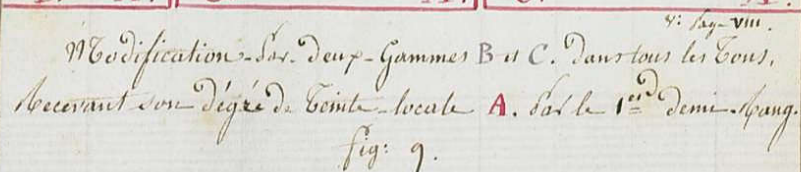 V: Pag. VIII.
Modification Par deux Gammes B et C. Dans tous les Tons,
Recevant son dégré de Teinte locale A. Par le 1er demi Rang.
fig: 9.